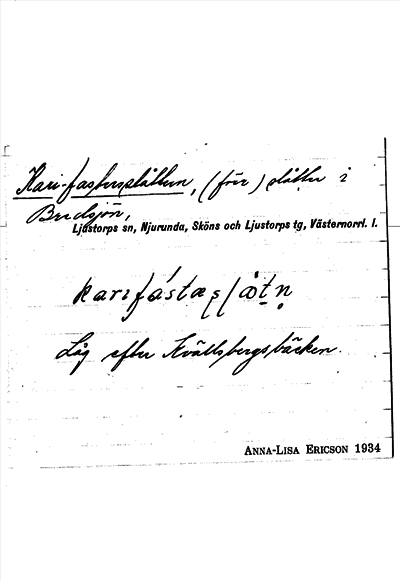 Kari-fastersslåtten, (förr) slåtter i
Bredsjön,
Ljustorps sn, Njurunda, Sköns och Ljustorps tg, Västernorrl. l.
Låg efter Kvällsbergsbäcken.
ANNA-LISA ERICSON 1934